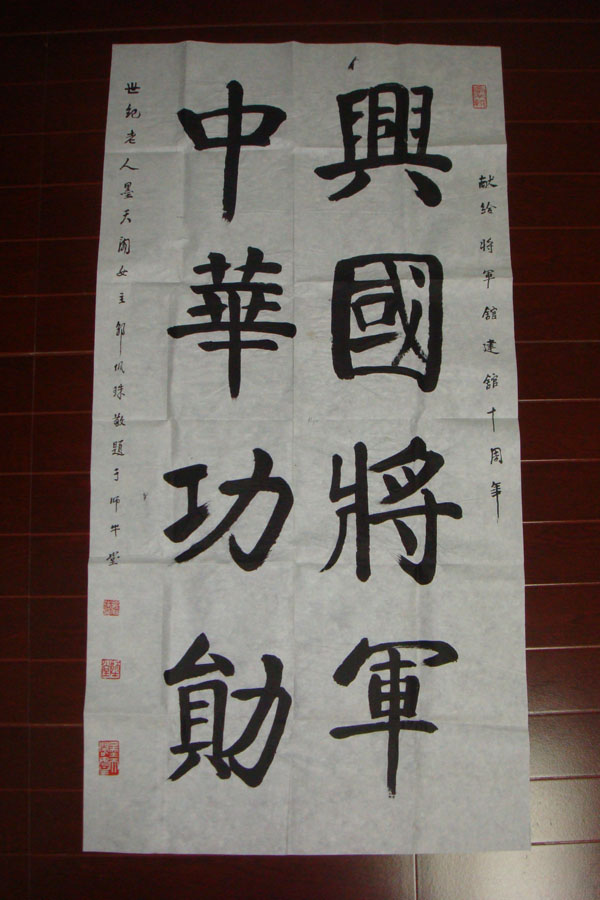 献给将军馆建馆十周年
興國將軍
中華功勛
世纪老人墨天阁女主邹佩珠敬题于师牛堂